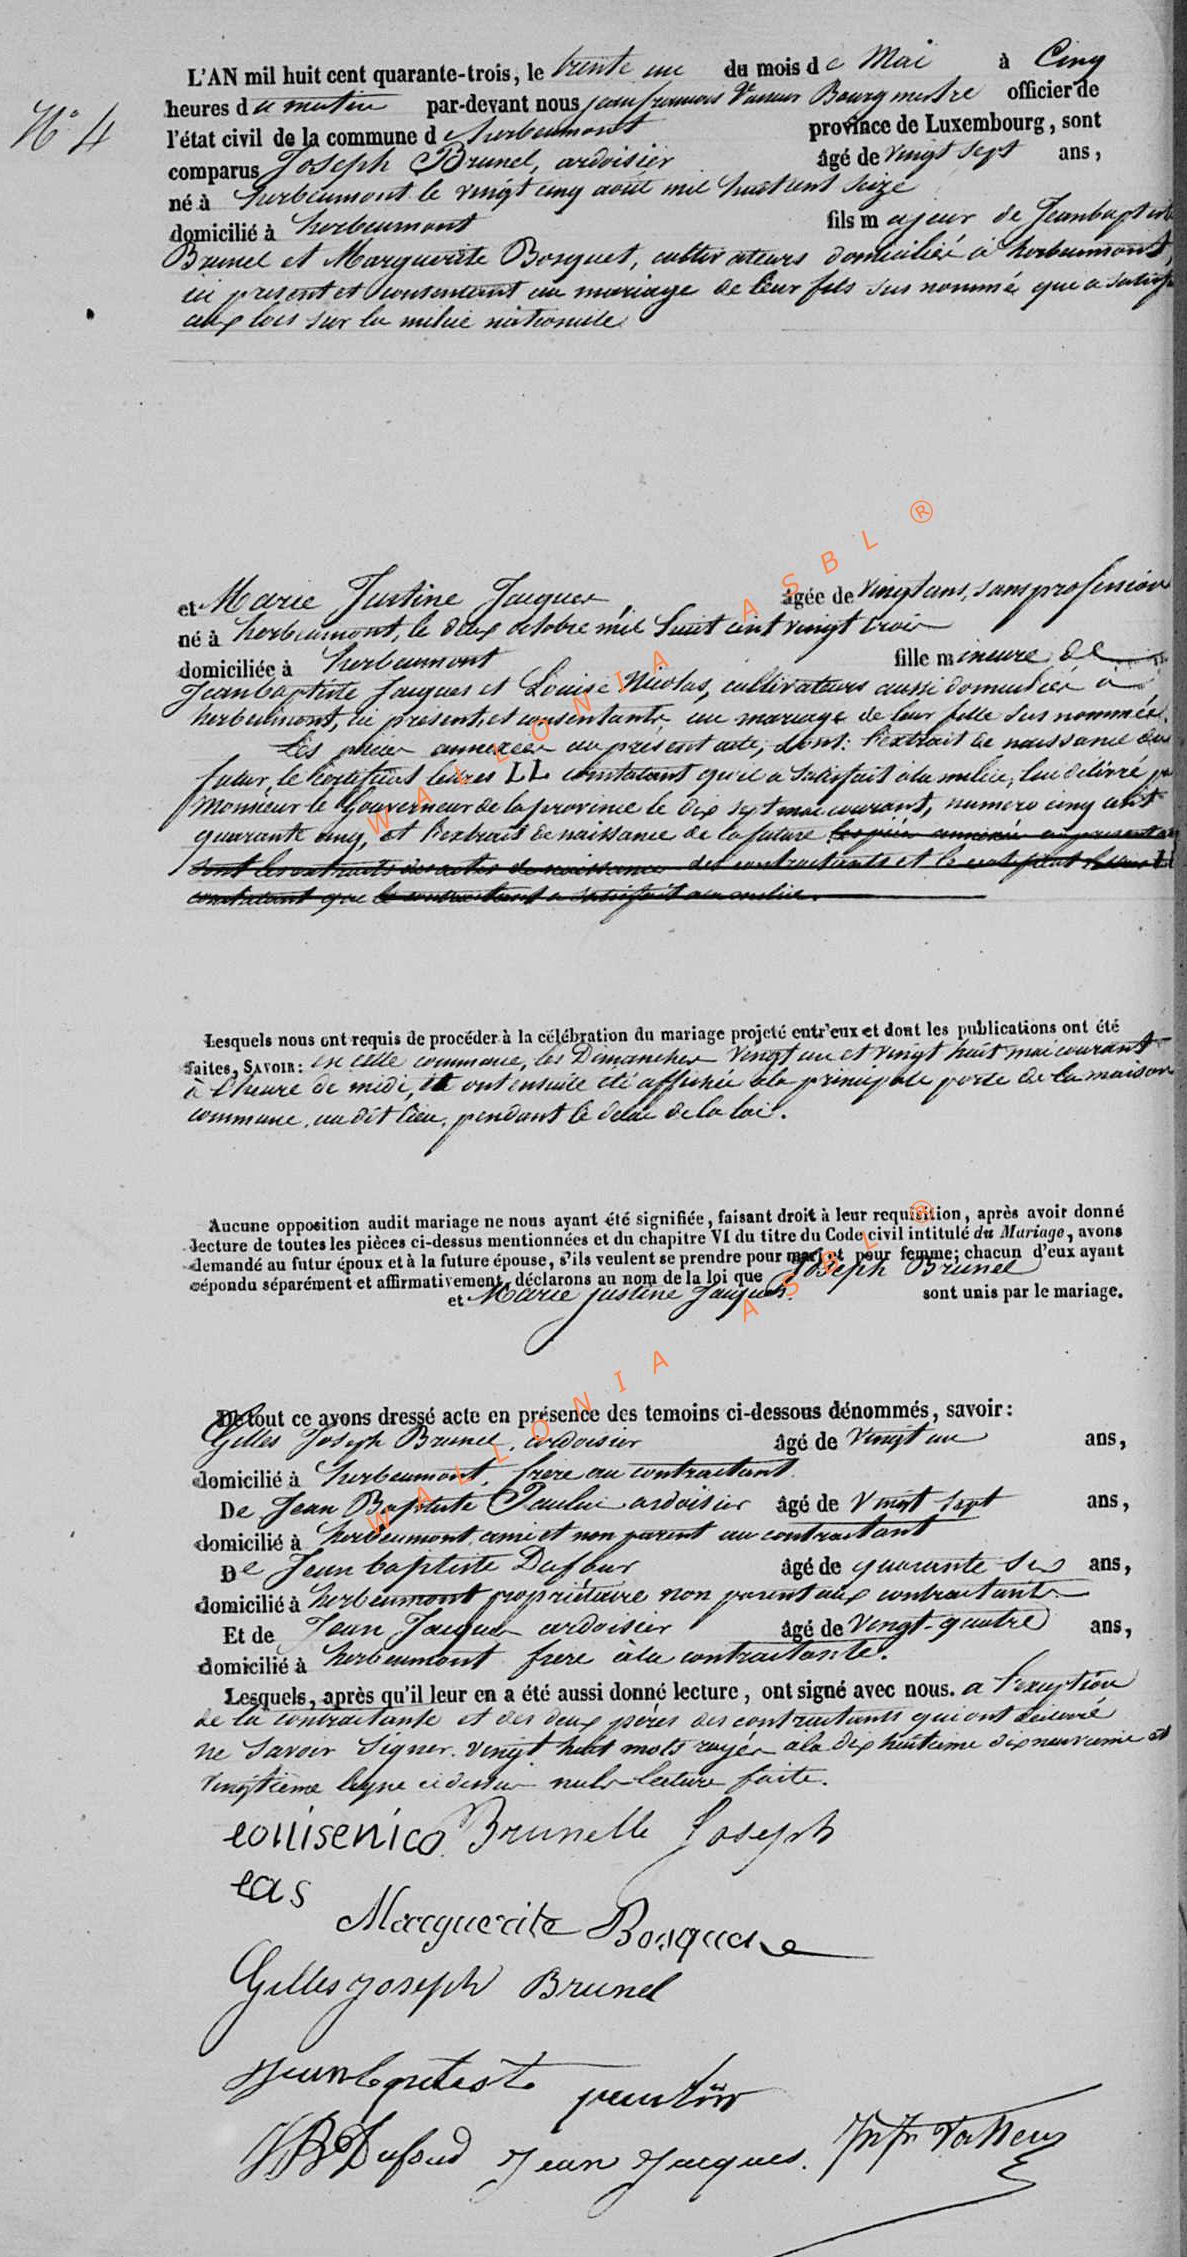 N° 4
L'AN mil huit cent quarante-trois, le trente un du mois de Mai à Cinq
heures du matin par-devant nous jean françois Vasseur Bourgmestre officier de
l'état civil de la commune d herbeumont province de Luxembourg, sont
comparus Joseph Brunel, ardoisier âgé de vingt sept ans,
né à herbeumont le vingt cinq août mil huit cent seize
domicilié à herbeumont fils majeur de Jeanbaptiste
Brunel et Marguerite Bosquet, cultivateurs domiciliés à herbeumont,
ici present et consentant au mariage de leur fils sus nommé que a satisfait
aux lois sur la milice nationale
et Marie Justine Jacques âgée de vingt ans, sans profession
né à herbeumont, le deux octobre mil huit cent vingt trois
domiciliée à herbeumont fille mineure de
Jeanbaptiste Jacques et Louise Nicolas, cultivateurs aussi domiciliés à
herbeumont, ici présents et consentants au mariage de leur fille sus nommée.
Les pièces annexées au présent acte, sont: l'extrait de naissance du
futur, le Certificat lettres LL constatant qu'il a satisfait à la milice, lui délivré par
Monsieur le Gouverneur de la province le dix sept mai courant, numero cinq cent
quarante cinq, et l'extrait de naissance de la future les pièces annexées au present acte
sont les extraits des actes de naissance des contractants et le certificat lettres LL
constatant que le contractant a satisfait à la milice.
Lesquels nous ont requis de procéder à la célébration du mariage projeté entr'eux et dont les publications ont été
faites, SAVOIR: en cette commune, les Dimanches vingt un et vingt huit mai courant
à l'heure de midi, et ont ensuite été affichée à la principale porte de la maison
commune, au dit lieu, pendant le délai de la loi.
Aucune opposition audit mariage ne nous ayant été signifiée, faisant droit à leur requisition, après avoir donné
lecture de toutes les pièces ci-dessus mentionnées et du chapitre VI du titre du Code civil intitulé du Mariage, avons
demandé au futur époux et à la future épouse, s'ils veulent se prendre pour mari et pour femme; chacun d'eux ayant
répondu séparément et affirmativement, déclarons au nom de la loi que Joseph Brunel
et Marie justine Jacques. sont unis par le mariage.
De tout ce avons dressé acte en présence des temoins ci-dessous dénommés, savoir:
Gilles Joseph Brunel, ardoisier âgé de vingt un ans,
domicilié à herbeumont, frère au contractant.
De Jean Baptiste Paulin ardoisier âgé de vingt sept ans,
domicilié à herbeumont, ami et non parent au contractant
De Jean baptiste Dufour âgé de quarante six ans,
domicilié à herbeumont propriétaire non parent aux contractants
Et de Jean Jacques ardoisier âgé de vingt-quatre ans,
domicilié à herbeumont frere à la contractante.
Lesquels, après qu'il leur en a été aussi donné lecture, ont signé avec nous. a l'exception
de la contractante et des deux pères des contractants qui ont déclaré
ne savoir signer. vingt huit mots rayés à la dix huitieme dix neuvieme et
vingtieme ligne ci dessus nuls lecture faite.
louisenico Brunelle Joseph
las
Marguerite Bosquet
Gilles joseph Brunel
JB Dufour Jean Jacques. Jn Fr Vasseur
WALLONIA ASBL ®
WALLONIA ASBL ®